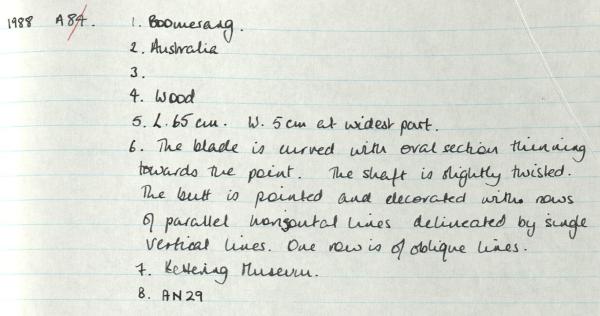 1988 A84. 1. Boomerang.
2. Australia
3.
4. Wood
5. L. 65 cm. W. 5 cm at widest part.
6. The blade is curved with oval section thinning
towards the point. The shaft is slightly twisted.
The butt is pointed and decorated with rows
of parallel horizontal lines delineated by single
vertical lines. One row is of oblique lines.
7. Kettering Museum.
8. AN29